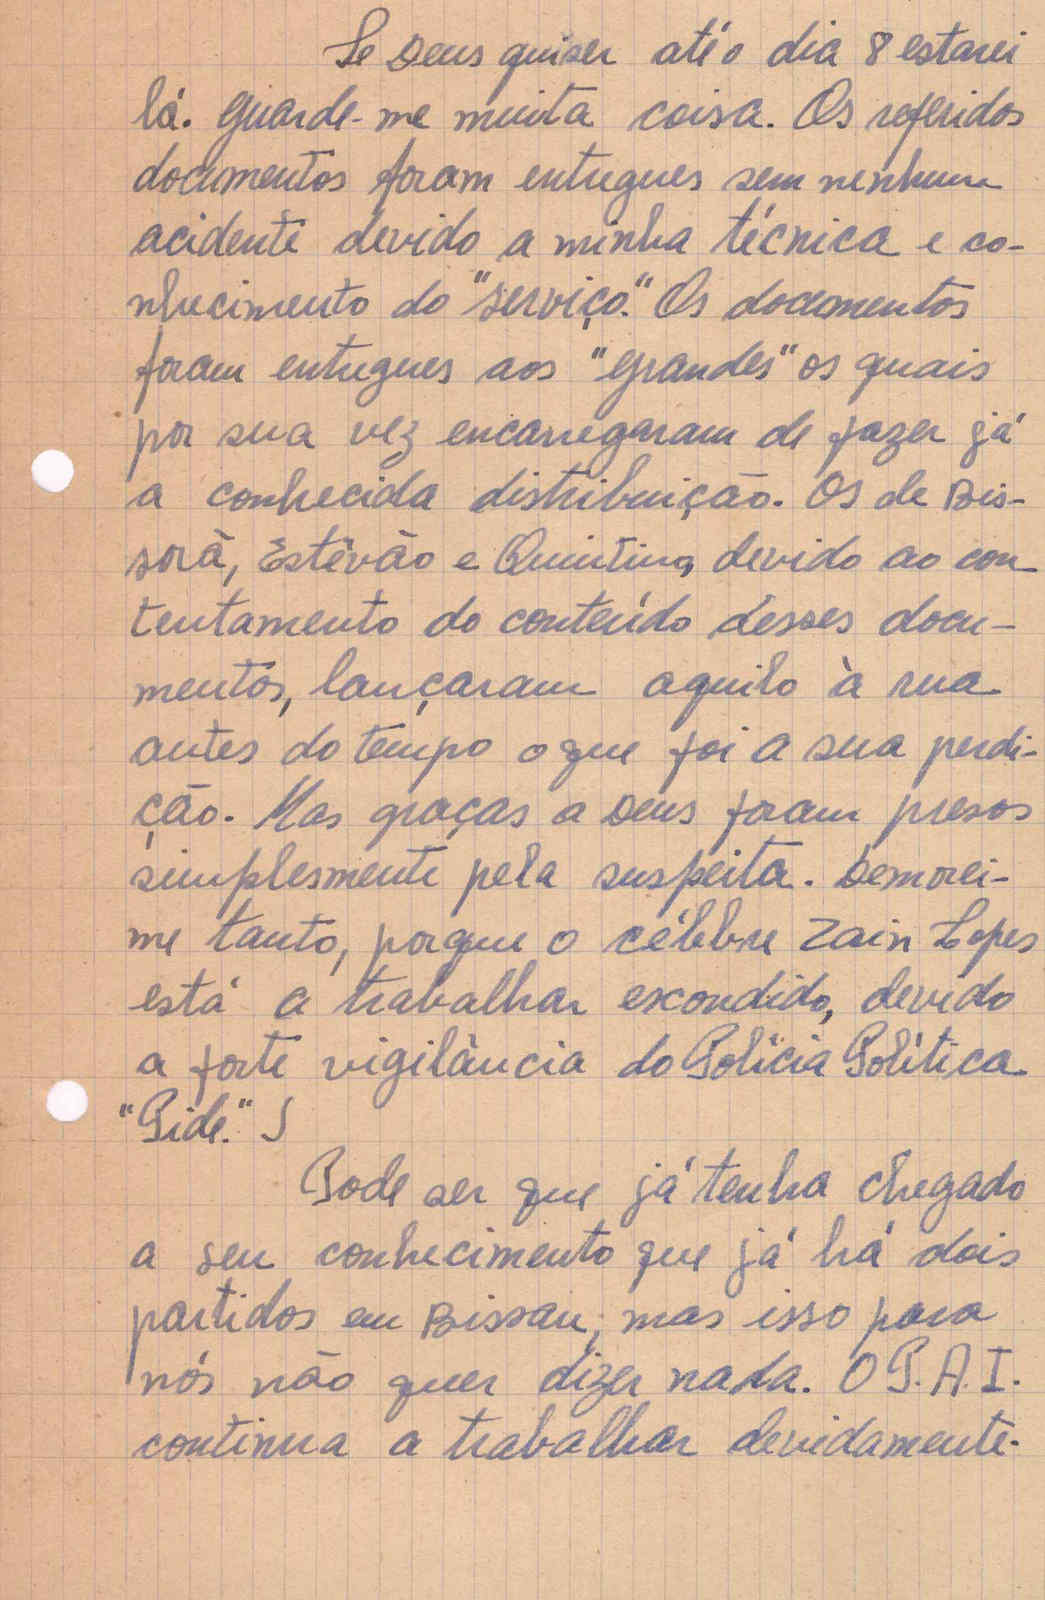 Se Deus quiser até o dia 8 estarei
lá. Guarde-me muita coisa. Os referidos
documentos foram entregues sem nenhum
acidente devido a minha técnica e co-
nhecimento do "serviço". Os documentos
foram entregues aos "grandes" os quais
por sua vez encarregaram de fazer já
a conhecida distribuição. Os de Bis-
sorã, Estêvão e Quintino, devido ao con
tentamento do conteúdo desses docu-
mentos, lançaram aquilo à rua
antes do tempo o que foi a sua perdi-
ção. Mas graças a Deus foram presos
simplesmente pela suspeita. Demorei-
me tanto, porque o célebre Zain Lopes
está a trabalhar escondido, devido
a forte vigilância do Polícia Política
"Pide."
Pode ser que já tenha chegado
a seu conhecimento que já há dois
partidos em Bissau, mas isso para
nós não quer dizer nada. O P.A.I.
continua a trabalhar devidamente.